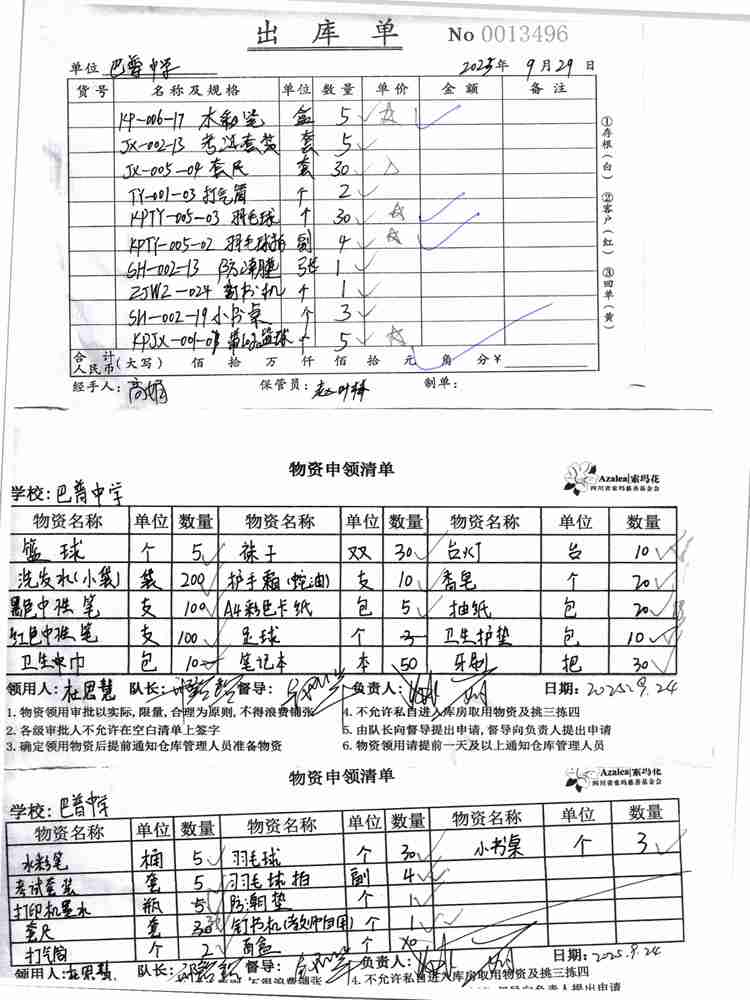 出库单 No 0013496
单位 巴普中学 2025年 9月29日
货号 名称及规格 单位 数量 单价 金额 备注
KP-006-17 水彩笔 盒 5
JX-002-13 考试套装 套 5
JX-005-04 套尺 套 30
TY-001-03 打气筒 个 2
KPTY-005-03 羽毛球 个 30
KPTY-005-02 羽毛球拍 副 4
SH-002-13 防潮垫 张 1
ZJWZ-024 订书机 个 1
SH-002-19 小书桌 个 3
KPJX-001-01 篮球 个 5
合计人民币(大写) 佰 拾 万 仟 佰 拾 元 角 分 ¥
经手人: 高娟 保管员: 制单:
①存根(白) ②客户(红) ③回单(黄)
物资申领清单
Azalea|索玛花
四川省索玛慈善基金会
学校: 巴普中学
物资名称 单位 数量 物资名称 单位 数量 物资名称 单位 数量
篮球 个 5 袜子 双 30 台灯 台 10
洗发水(小袋) 袋 200 护手霜(蛇油) 支 10 香皂 个 20
黑色中性笔 支 100 A4彩色卡纸 包 5 抽纸 包 20
红色中性笔 支 100 足球 个 3 卫生护垫 包 10
卫生巾 包 10 笔记本 本 50 牙刷 把 30
领用人: 杜思慧 队长: 督导: 负责人: 日期: 2025.9.24
1. 物资领用审批以实际, 限量, 合理为原则, 不得浪费铺张 4. 不允许私自进入库房取用物资及挑三拣四
2. 各级审批人不允许在空白清单上签字 5. 由队长向督导提出申请, 督导向负责人提出申请
3. 确定领用物资后提前通知仓库管理人员准备物资 6. 物资领用请提前一天及以上通知仓库管理人员
物资申领清单
Azalea|索玛花
四川省索玛慈善基金会
学校: 巴普中学
物资名称 单位 数量 物资名称 单位 数量 物资名称 单位 数量
水彩笔 桶 5 羽毛球 个 30 小书桌 个 3
考试套装 套 5 羽毛球拍 副 4
打印机墨水 瓶 5 防潮垫 个 1
套尺 套 30 钉书机(教师自用) 个 1
打气筒 个 2 个
领用人: 杜思慧 队长: 督导: 负责人: 日期: 2025.9.24
不得浪费铺张 4. 不允许私自进入库房取用物资及挑三拣四
督导向负责人提出申请